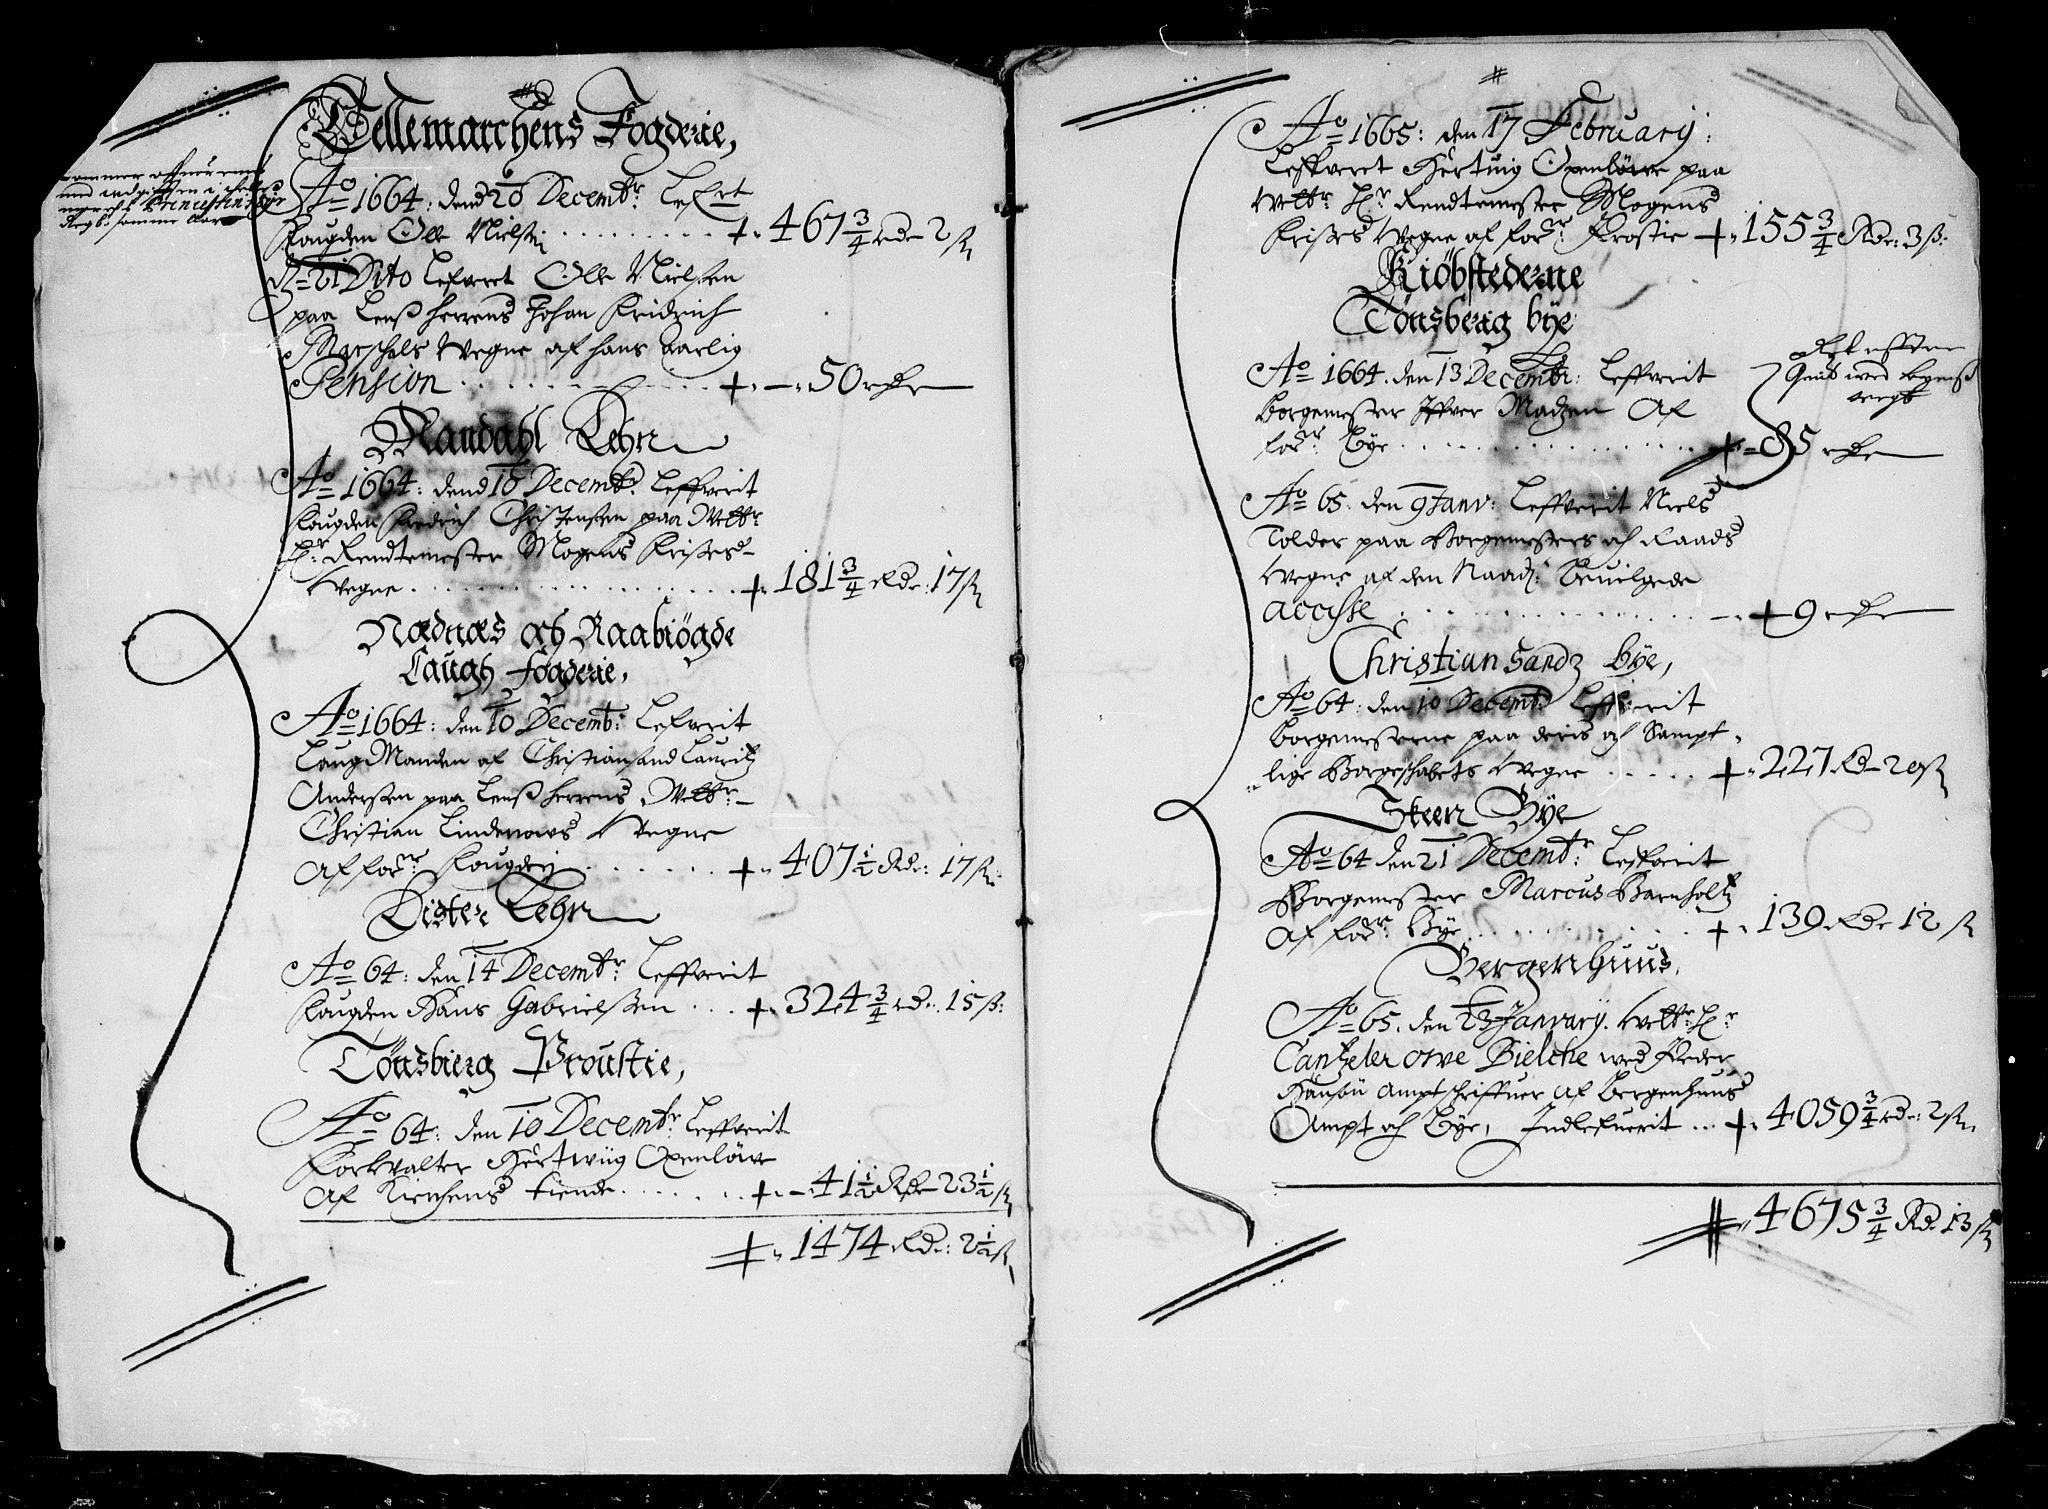 Tellemarchens Fogderie,
Ao 1664: dend 20 Decembr: Lefret
Fougden Olle Nielsen ......... + 467 3/4 rde 2 ß
d= 21 Dito Lefveret Olle Nielsen
paa Lenß herrens Johan Fridrich
Marschals Vegne af hans aarlig
Pension ......... + — 50 rde
Mandahl Lehn
Ao 1664: dend 10 Decembr: Leffverit
fougden Fredrich Christensen paa Velbr
Hr: Rendtemester Mogens Frises
Vegne ......... + 181 3/4 Rde: 17 ß
Nædnæs och Raabiögde
Laugs Fogderie,
Ao 1664: den 10 Decembr: Lefverit
LaugManden af Christiansand Lauritz
Andersen paa Lenß herrens Velbr
Christian Lindenows Vegne
Af forr: fougderj ...... + 407 1/2 Rde: 17 ß
Lister Lehn
Ao 64: den 14 Decembr: Leffverit
fougden Hans Gabrielsen ... + 324 3/4 rd: 15 ß:
Tönsbierg Proustie,
Ao 64: den 10 Decembr: Leffverit
Forvalter Hertwiig Oxenlöwe
Af Kirchens tiende ...... + — 41 1/2 Rde 23 1/2 ß
1474 Rde: 2 1/2 ß
Ao 1665: den 17 February:
Leffveret Hertuig Oxenlöwe paa
Velbr: Hr: Rendtemester Mogens
Frises Vegne af forr: Prostie + 155 3/4 Rde: 3 ß:
Kiöbstederne
Tönsberig bÿe
Ao 1664. den 13 Decembr: Leffverit
Borgemester Iffver Madzen Af
forr: bye ......... + 85 rde
Ao 65. den 9 Janv: Leffverit Niels
Tolder paa Borgemesters och Raads
Vegne af den Naad: beuilgede
accisse ......... + 9 rde
Christian Sandz bÿe,
Ao 64: den 10 Decembr: Leffverit
Borgemesterne paa deris och Sampt-
lige Borgeschabets Vegne ..... + 227 Rd 20 ß
Skeen Bÿe
Ao 64 den 21 Decembr: Leffverit
Borgemester Marcus Barnholtz
Af forr: Bÿe ......... + 139 Rde 12 ß
Bergenhuus,
Ao 65. den 23 January. Velbr: Hr
Cantzeler Owe Bielche wed Peder
Hansön Ampt schriffuer af Bergenhuus
Ampt och bye, Indlefuerit ... + 4059 3/4 rde: 2 ß
4675 3/4 Rd 13 ß